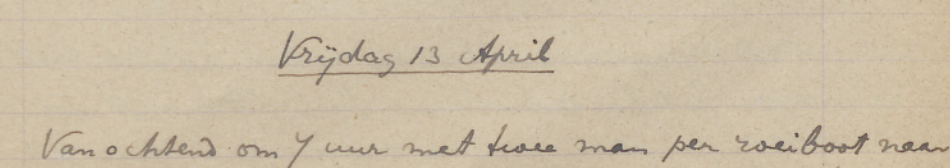 Vrijdag 13 April
Vanochtend om 7 uur met twee man per roeiboot naar